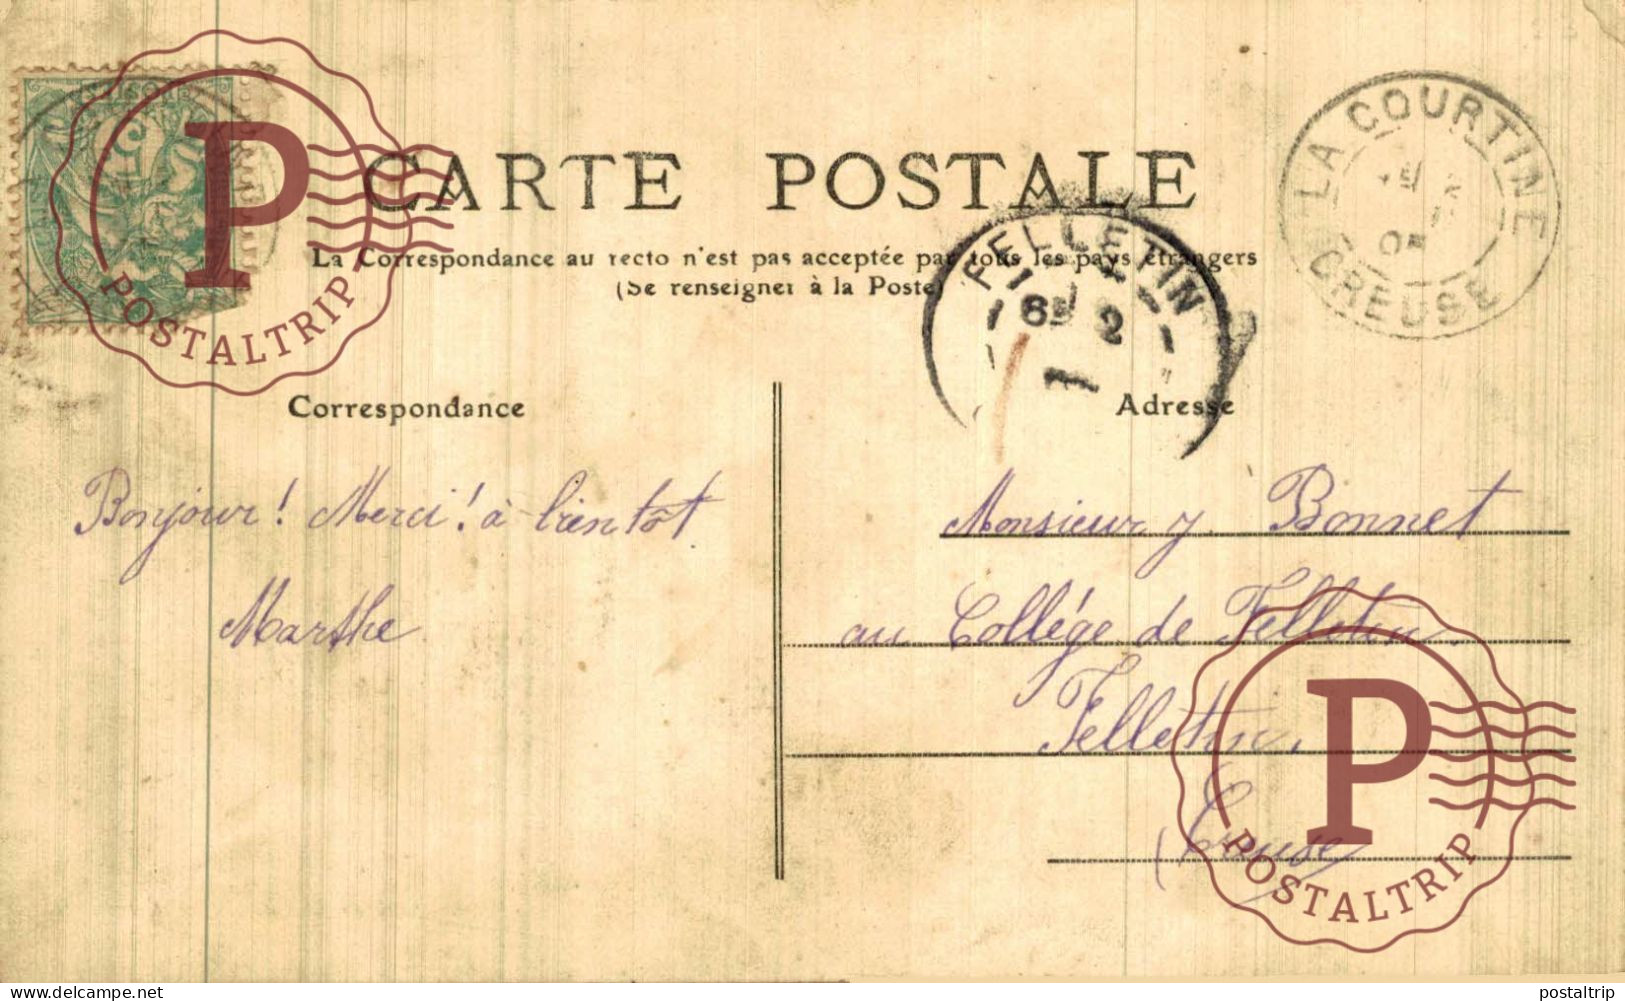 CARTE POSTALE
La Correspondance au recto n'est pas acceptée par tous les pays étrangers
(Se renseigner à la Poste)
LA COURTINE
CREUSE
FELLETIN
6E 2
P
POSTALTRIP
Correspondance
Adresse
Bonjour! Merci! à bientôt
Marthe
Monsieur J. Bonnet
au Collège de Felletin
Felletin.
(Creuse
P
POSTALTRIP
www.delcampe.net
postaltrip